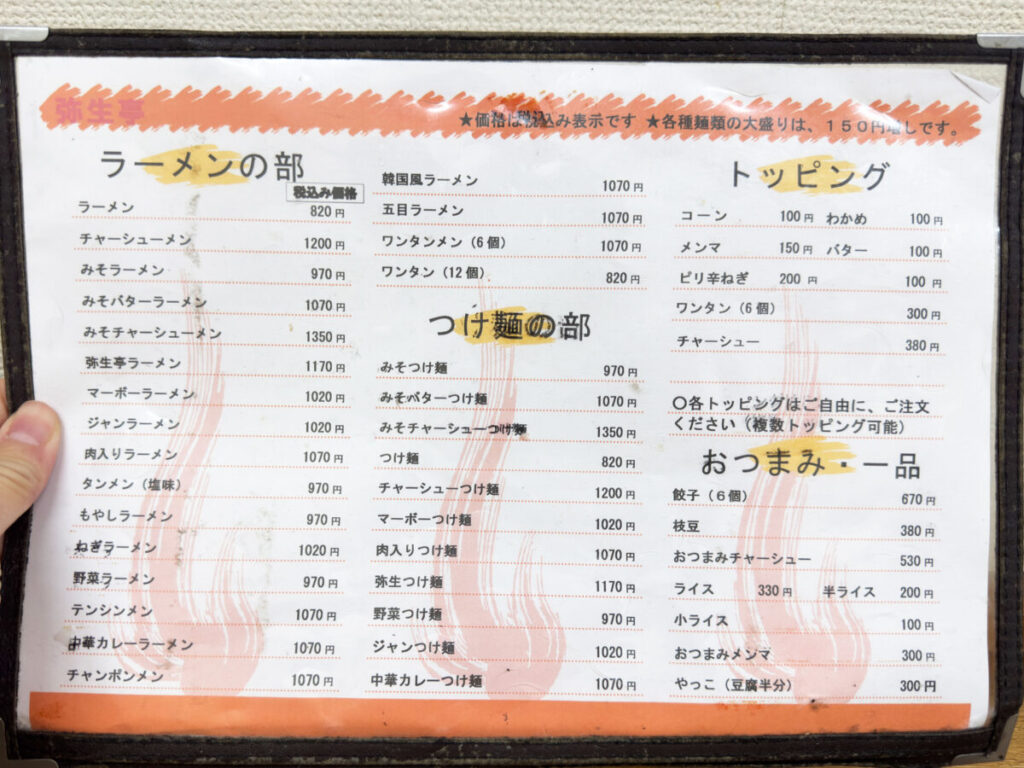 弥生亭
★価格は税込み表示です ★各種麺類の大盛りは、150円増しです。
ラーメンの部
税込み価格
ラーメン 820円
チャーシューメン 1200円
みそラーメン 970円
みそバターラーメン 1070円
みそチャーシューメン 1350円
弥生亭ラーメン 1170円
マーボーラーメン 1020円
ジャンラーメン 1020円
肉入りラーメン 1070円
タンメン（塩味） 970円
もやしラーメン 970円
ねぎラーメン 1020円
野菜ラーメン 970円
テンシンメン 1070円
中華カレーラーメン 1070円
チャンポンメン 1070円
韓国風ラーメン 1070円
五目ラーメン 1070円
ワンタンメン（6個） 1070円
ワンタン（12個） 820円
つけ麺の部
みそつけ麺 970円
みそバターつけ麺 1070円
みそチャーシューつけ麺 1350円
つけ麺 820円
チャーシューつけ麺 1200円
マーボーつけ麺 1020円
肉入りつけ麺 1070円
弥生つけ麺 1170円
野菜つけ麺 970円
ジャンつけ麺 1020円
中華カレーつけ麺 1070円
トッピング
コーン 100円 わかめ 100円
メンマ 150円 バター 100円
ピリ辛ねぎ 200円 100円
ワンタン（6個） 300円
チャーシュー 380円
〇各トッピングはご自由に、ご注文
ください（複数トッピング可能）
おつまみ・一品
餃子（6個） 670円
枝豆 380円
おつまみチャーシュー 530円
ライス 330円 半ライス 200円
小ライス 100円
おつまみメンマ 300円
やっこ（豆腐半分） 300円